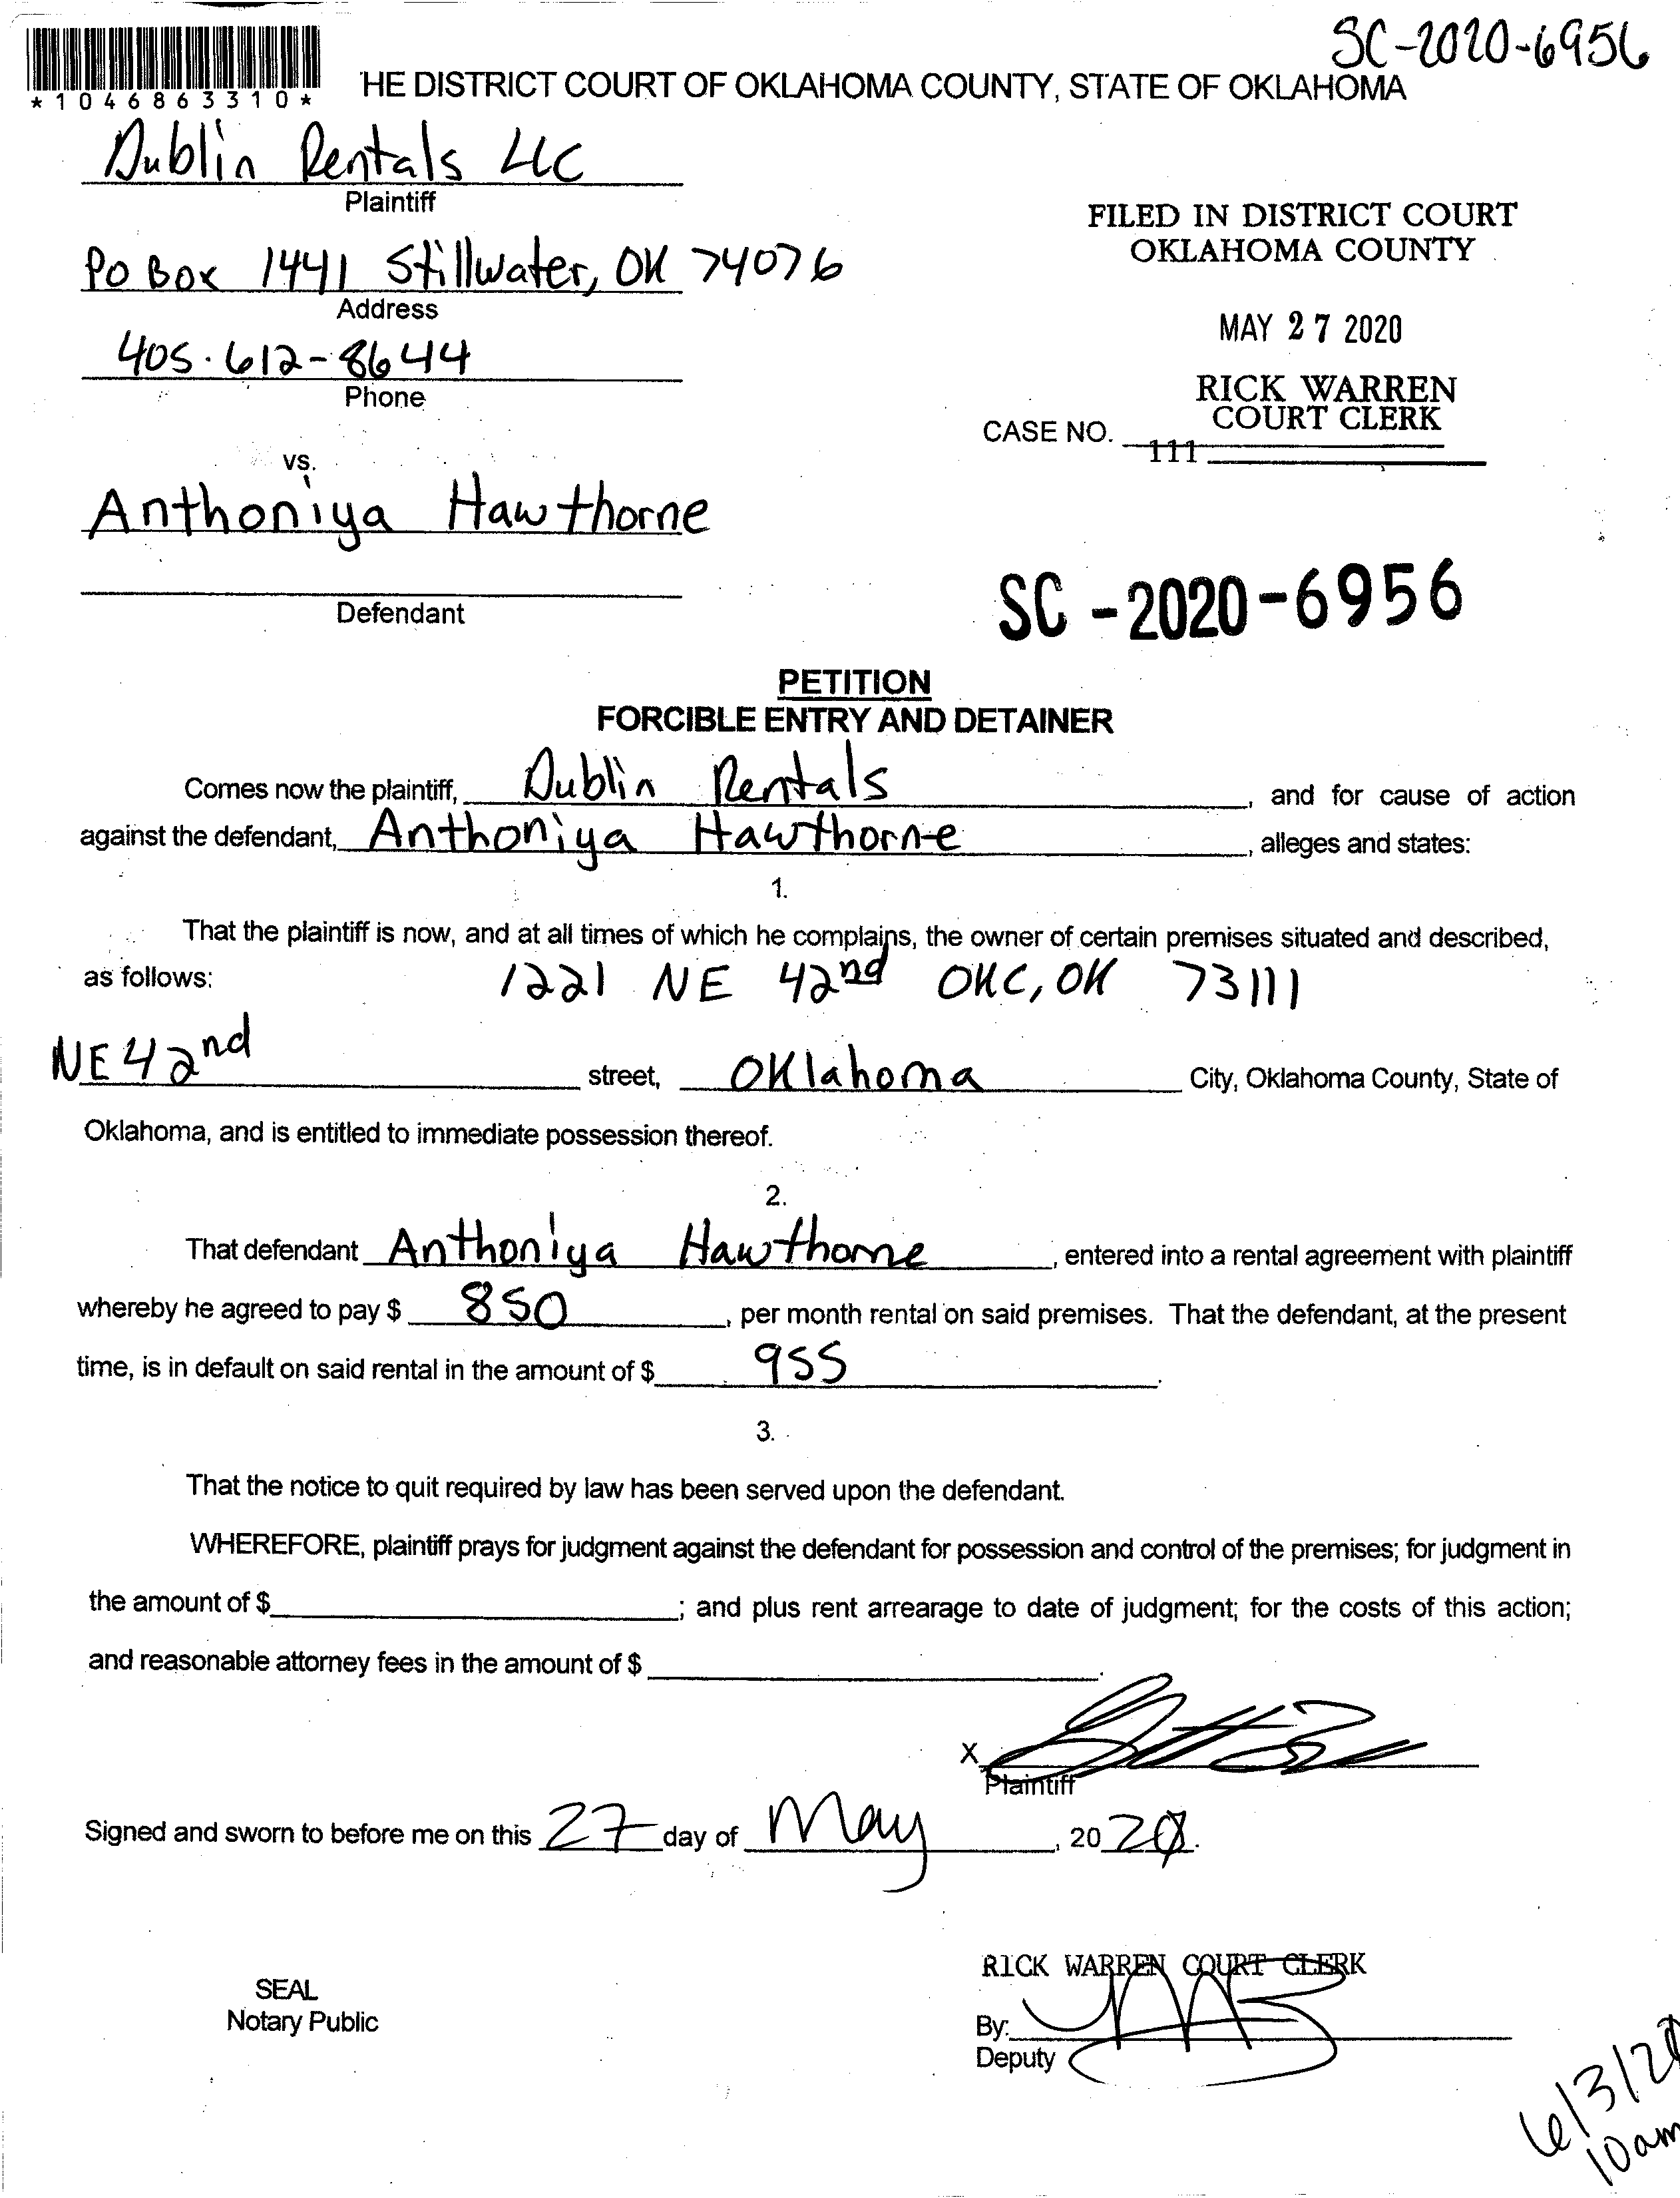 SC-2020-6956
*1046863310*
HE DISTRICT COURT OF OKLAHOMA COUNTY, STATE OF OKLAHOMA
Dublin Rentals LLC
Plaintiff
PO Box 1441 Stillwater, OK 74076
Address
405.612-8644
Phone
FILED IN DISTRICT COURT
OKLAHOMA COUNTY
MAY 27 2020
RICK WARREN
COURT CLERK
CASE NO.
111
vs.
Anthoniya Hawthorne
Defendant
SC-2020-6956
PETITION
FORCIBLE ENTRY AND DETAINER
Comes now the plaintiff, Dublin Rentals, and for cause of action
against the defendant, Anthoniya Hawthorne, alleges and states:
1.
That the plaintiff is now, and at all times of which he complains, the owner of certain premises situated and described,
as follows: 1221 NE 42nd OKC, OK 73111
NE 42nd street, Oklahoma City, Oklahoma County, State of
Oklahoma, and is entitled to immediate possession thereof.
2.
That defendant Anthoniya Hawthorne, entered into a rental agreement with plaintiff
whereby he agreed to pay $ 850, per month rental on said premises. That the defendant, at the present
time, is in default on said rental in the amount of $ 955.
3.
That the notice to quit required by law has been served upon the defendant.
WHEREFORE, plaintiff prays for judgment against the defendant for possession and control of the premises; for judgment in
the amount of $; and plus rent arrearage to date of judgment; for the costs of this action;
and reasonable attorney fees in the amount of $.
X
Plaintiff
Signed and sworn to before me on this 27 day of May, 2020.
SEAL
Notary Public
RICK WARREN COURT CLERK
By:
Deputy
6/3/20
10am